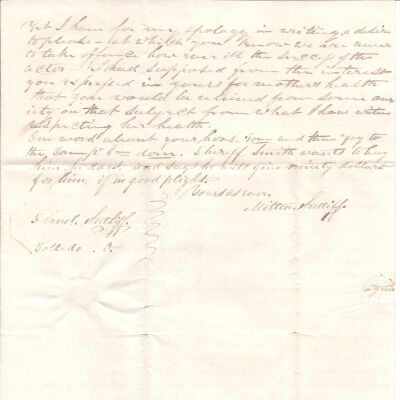 Yet I have for my apology in writing a desire
to please at which you know we are never
to take offence however ill the success of the
actor. I had supposed from the interest
you expressed in yours for mothers health
that you would be relieved from some anx
iety on that subject from what I have written
respecting her health
One word about your horse. You and then "go to
the camp" I'm done. Sheriff Smith wants to buy
him he dont and says he will give ninety dollars
for him, if in good plight.
Yours as ever.
Milton Sutliff.
Flavel Sutliff.
Toledo. O.